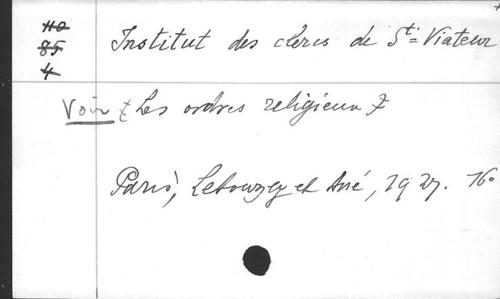 110
85
4
Institut des clercs de St= Viateur
Voir [Les ordres religieux]
Paris, Letouzey et Ané, 1927. 16°